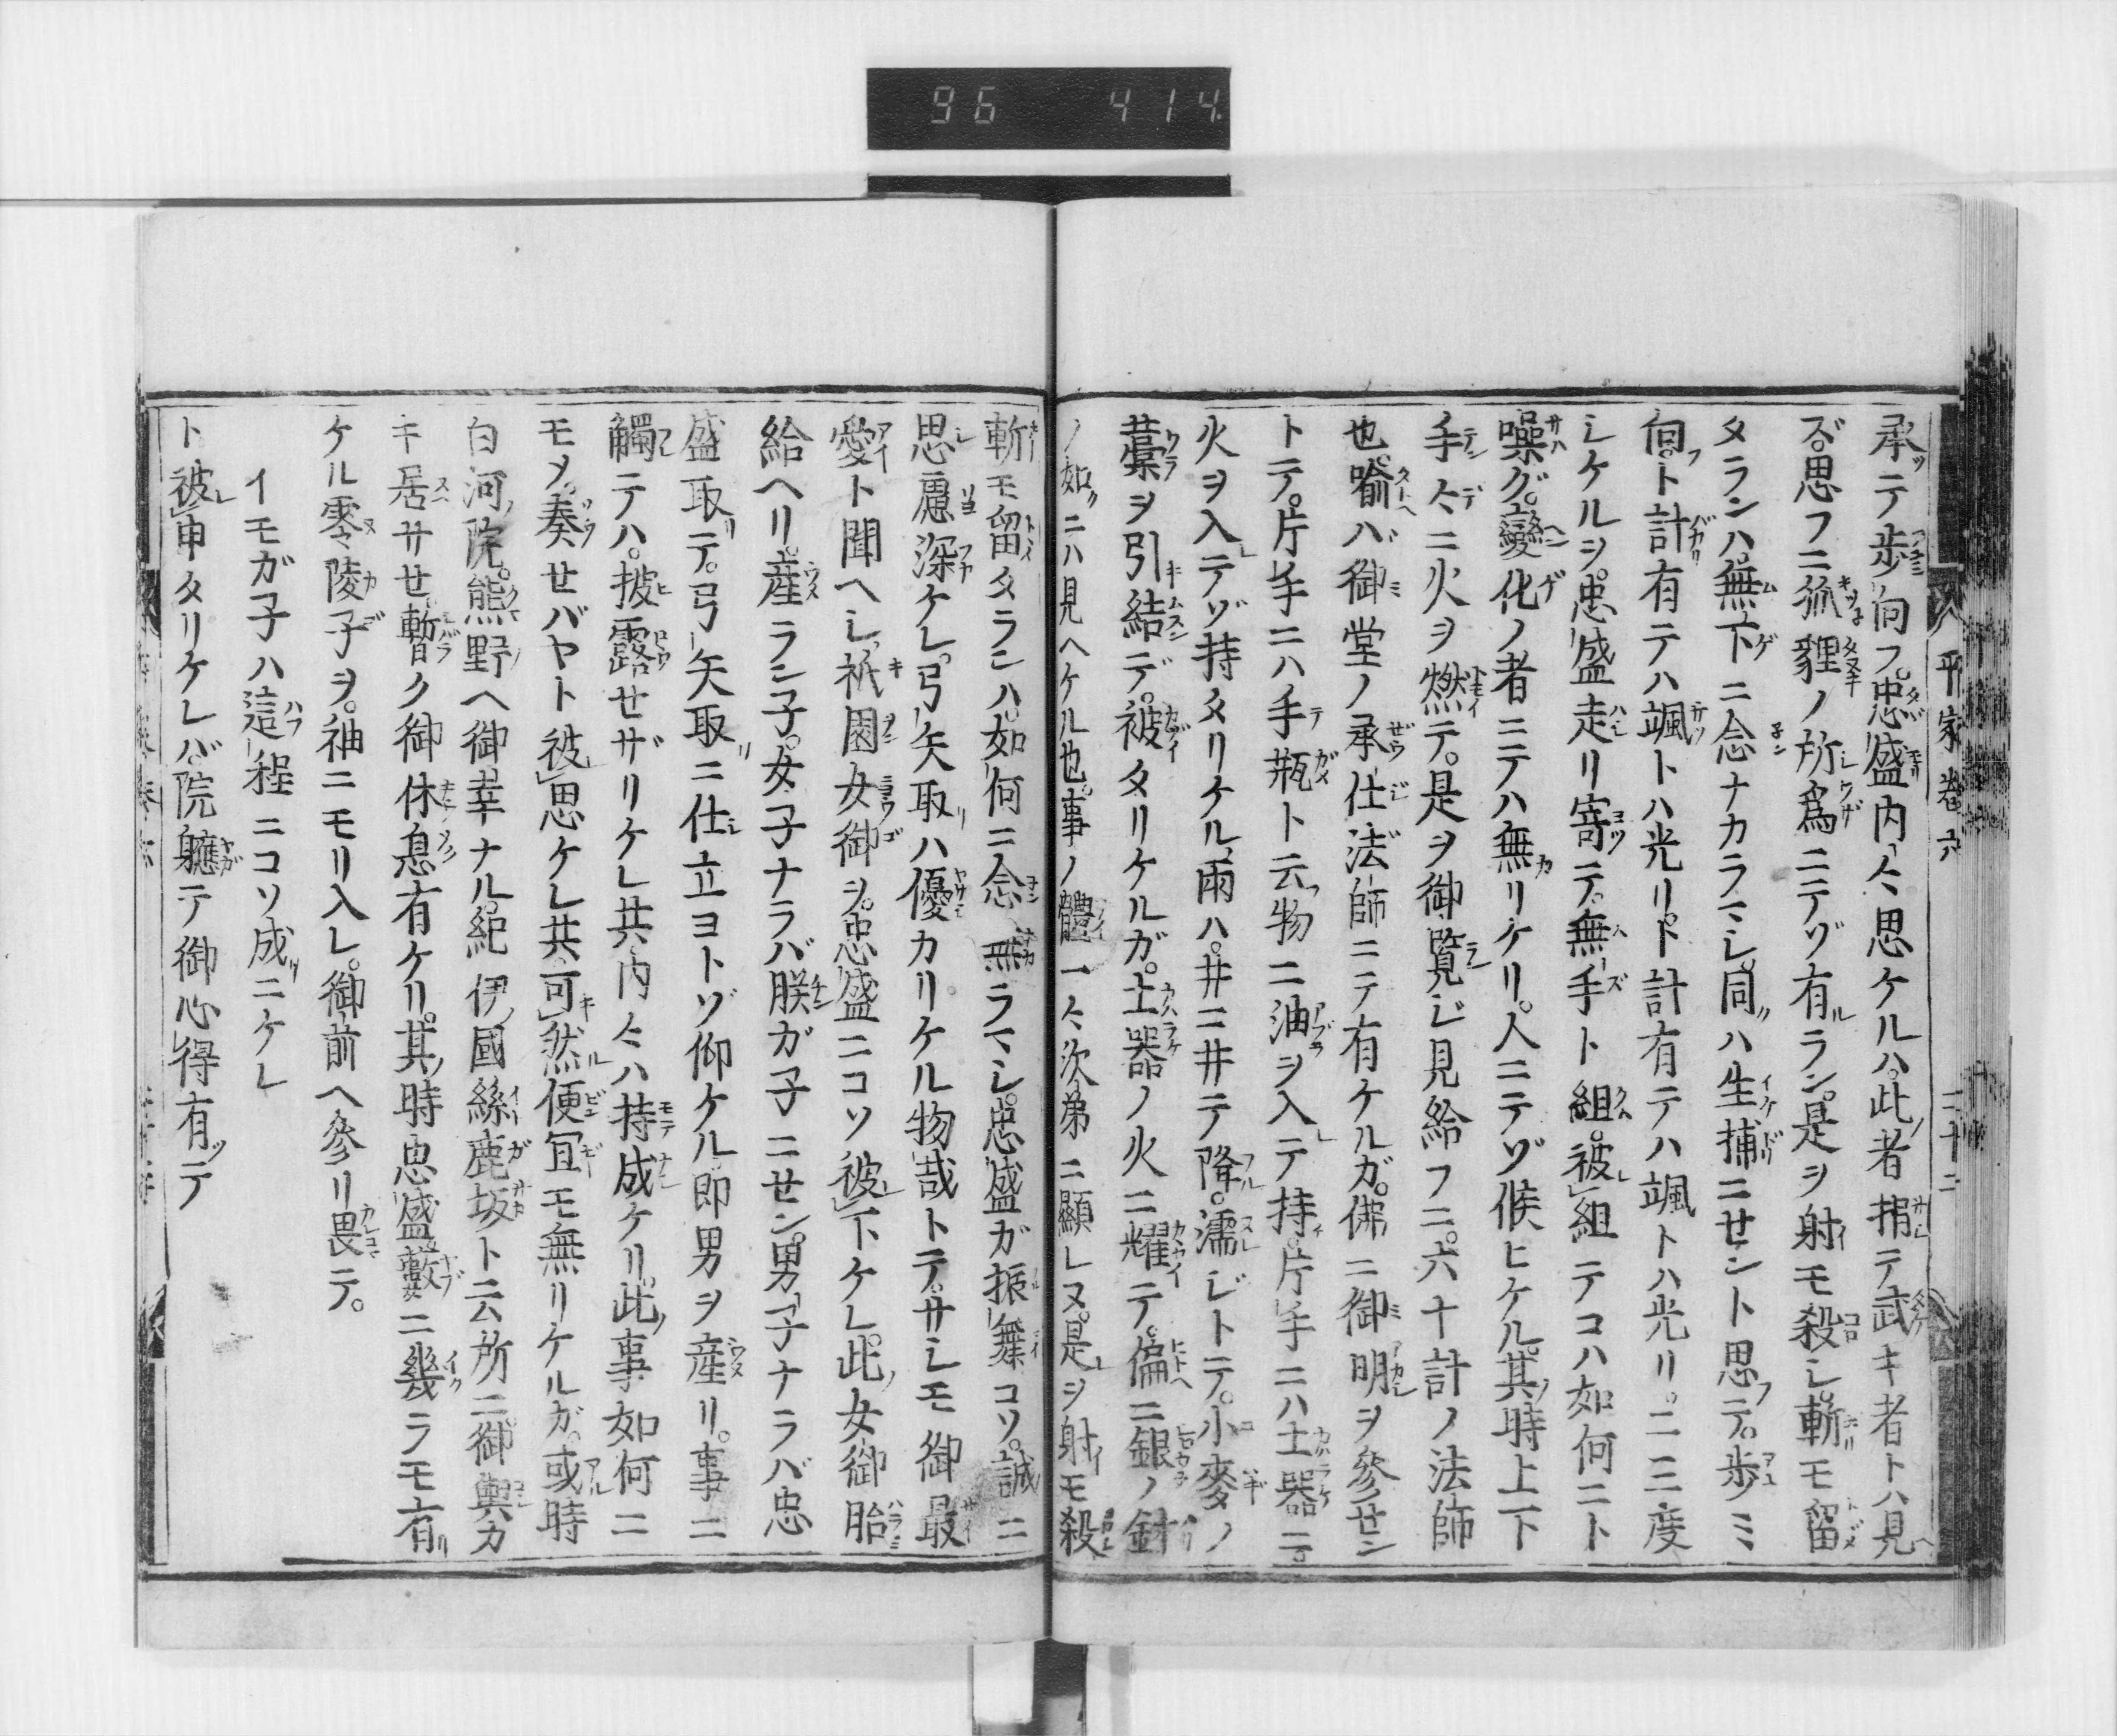 96 414
平家巻六 二十二
承テ歩向フ。忠盛内々思ケルハ。此者揩テ武キ者トハ見
ズ。思フニ狐狸ノ所爲ニテゾ有ラン。是ヲ射モ殺シ。斬モ留
タランハ。無下ニ念ナカラマシ。同ハ生捕ニせント思テ。歩ミ
向。ト計有テハ颯トハ光リ。ト計有テハ颯トハ光リ。二三度
シケルヲ。忠盛走リ寄テ。無手ト組。被組テコハ如何ニト
噪グ。變化ノ者ニテハ無リケリ。人ニテゾ候ヒケル。其時上下
手々ニ火ヲ燃テ。是ヲ御覧ジ見給フニ。六十計ノ法師
也。喩ハ御堂ノ承仕法師ニテ有ケルガ。佛ニ御明ヲ參せン
トテ。片手ニハ手瓶ト云物ニ油ヲ入テ持。片手ニハ土器ニ。
火ヲ入テゾ持タリケル。雨ハ。井ニ井テ降。濡ジトテ。小麥ノ
藁ヲ引結デ。被タリケルガ。土器ノ火ニ耀テ。偏ニ銀ノ針
ノ如ニハ見ヘケル也。事ノ體一々次第ニ顯レヌ。是ヲ射モ殺
斬モ留タランハ。如何ニ念無ラマシ。忠盛ガ振舞コソ。誠ニ
思慮深ケレ。弓矢取ハ優カリケル物哉トテ。サシモ御最
愛ト聞ヘシ。祇園女御ヲ。忠盛ニコソ被下ケレ。此女御胎
給ヘリ。産ラン子。女子ナラバ朕ガ子ニせン。男子ナラバ忠
盛取テ。弓矢取ニ仕立ヨトゾ仰ケル。即男ヲ産リ。事ニ
觸テハ。披露せザリケレ共。内々ハ持成ケリ。此事如何ニ
モメ。奏せバヤト被思ケレ共。可然便冝モ無リケルガ。或時
白河院。熊野ヘ御幸ナル。紀伊國絲鹿坂ト云所ニ。御輿カ
キ居サせ。暫ク御休息有ケリ。其時忠盛。藪ニ幾ラモ有
ケル零陵子ヲ。袖ニモリ入レ。御前ヘ參リ畏テ。
イモガ子ハ這程ニコソ成ニケレ
ト。被申タリケレバ。院軈テ御心得有テ